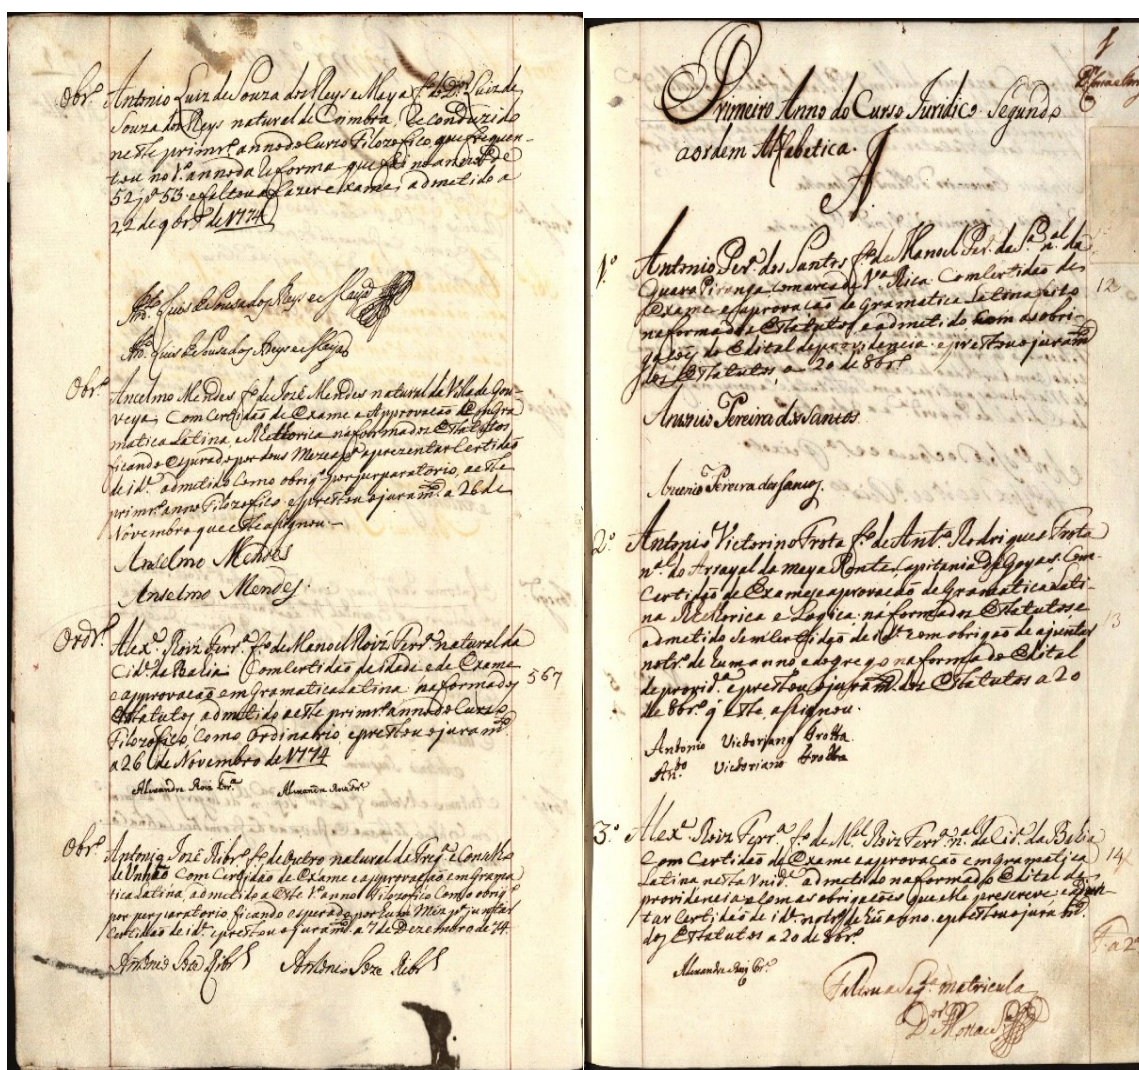 Obr.º Antonio Luiz de Souza dos Reys e Maya f.º do D.or Luiz de
Souza dos Reys natural de Coimbra, Reconduzido
neste primr.º anno do Curso Filozofico que frequen-
tou no 1.º anno da Reforma que fes no anno de
52 p.ª 53 e faltou a fazer exame; admetido a
22 de 9br.º de 1774
Ant.º Luis de Sousa dos Reys e Maya
Ant.º Luis de Sousa dos Reys e Maya
Obr.º Ancelmo Mendes f.º de José Mendes natural da Villa de Gou-
veya, Com Certidaõ de Exame e Approvaçaõ em Gra
matica Latina, e Rethorica na forma dos Estatutos
ficando esperado por dous Mezes p.ª aprezentar Certidaõ
de id.e admetido como obrig.º por ser paratorio, a este
primr.º anno Filozofico e prestou o juram.to a 26 de
Novembro que este asignou.
Anselmo Mendes
Anselmo Mendes.
Ordr.º Alex.e Roiz Ferr.ª f.º de Manoel Roiz Ferr.ª natural da
Cid.e da Bahia Com Certidaõ de idade e de Exame
e approvaçaõ em Gramatica Latina na forma dos 567
Estatutos admetido a este primr.º anno do Curso
Filozofico como Ordinario e prestou o juram.to
a 26 de Novembro de 1774
Alexandre Roiz Frr.ª Alexandre Roiz Frr.ª
Obr.º Antonio José Ribr.º f.º de Outro natural da Freg.ª e Cons.º
de Unhaõ Com Certidaõ de Exame e approvaçaõ em Grama
tica Latina, admetido a Este 1.º anno Filozofico Como obrig.º
por perparatorio ficando esperado por hum Mez p.ª juntar
Certidaõ de id.e e prestou o juram.to a 7 de Dezembro de 74.
Antonio Joze Ribr.º Antonio Joze Ribr.º
1
Primeiro Anno do Curso Juridico Segundo
a ordem Alfebetica.
A.
1.º Antonio Per.ª dos Santos f.º de Manoel Per.ª da S.ª n.al da
Guarapiranga comarca de V.ª Rica Com Certidaõ de 12
Exame e aprovaçaõ de Gramatica Latina feito
na forma dos Estatutos e admetido com as obri-
gaçoẽs do Edital de providencia e prestou o juram.to
dos Estatutos a 20 de 8br.º
Antonio Pereira dos Santos
Antonio Pereira dos Santos
2.º Antonio Victorino Frota f.º de Ant.º Rodrigues Frota
n.al do Arrayal da Meya Ponte, Capitania de Goyas. Com
Certidaõ de Exame e aprovaçaõ de Gramatica Lati-
na Rethorica e Logica na forma dos Estatutos e 13
admetido sem Certidaõ de id.e com obrigaõ de ajuntar
no tr.º de hum anno e do grego na forma do Edital
de provid.ª e prestou o juram.to dos Estatutos a 20
de 8br.º q este asignou.
Antonio Victoriano Frotta
Ant.º Victoriano Frotta
3.º Alex.e Roiz Ferr.ª f.º de M.el Roiz Ferr.ª n.al da Cid.e da Bahia
Com Certidaõ de Exame e aprovaçaõ em Gramatica 14
Latina nesta Unid.e admetido na forma do Edital de
providencia e com as obrigaçoẽs que elle prescreve e
tar Certidaõ de id.e no tr.º de hũ anno, e prestou o juram.to
dos Estatutos a 20 de 8br.º
Alexandre Roiz Frr.ª
F. a 2.ª
Faltou a Seg.da matricula